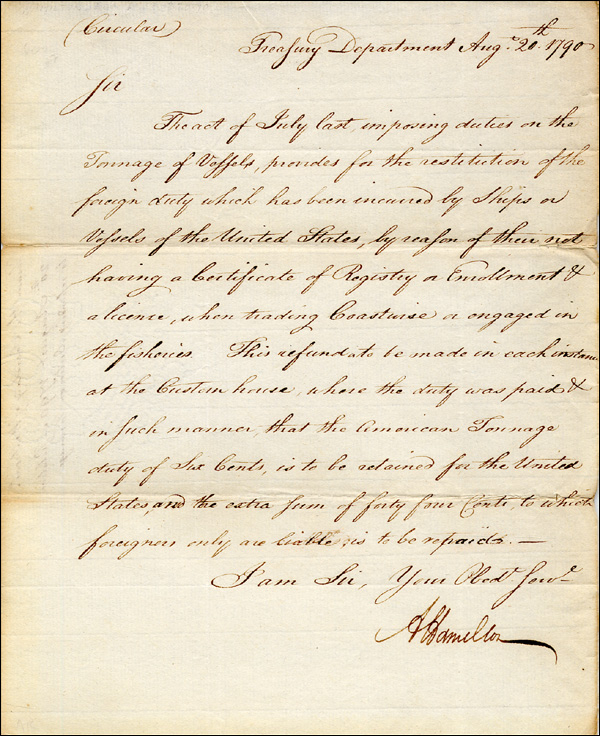 (Circular)
Treasury Department Augt. 20th. 1790
Sir
The act of July last, imposing duties on the
Tonnage of Vessels, provides for the restitution of the
foreign duty which has been incurred by Ships or
Vessels of the United States, by reason of their not
having a Certificate of Registry or Enrollment &
a licence, when trading Coastwise or engaged in
the fisheries. This refund to be made in each instance
at the Custom house, where the duty was paid &
in such manner, that the American Tonnage
duty of Six Cents, is to be retained for the United
States, and the extra sum of forty four Cents, to which
foreigners only are liable, is to be repaid. —
I am Sir, Your Obedt. Servt.
A Hamilton